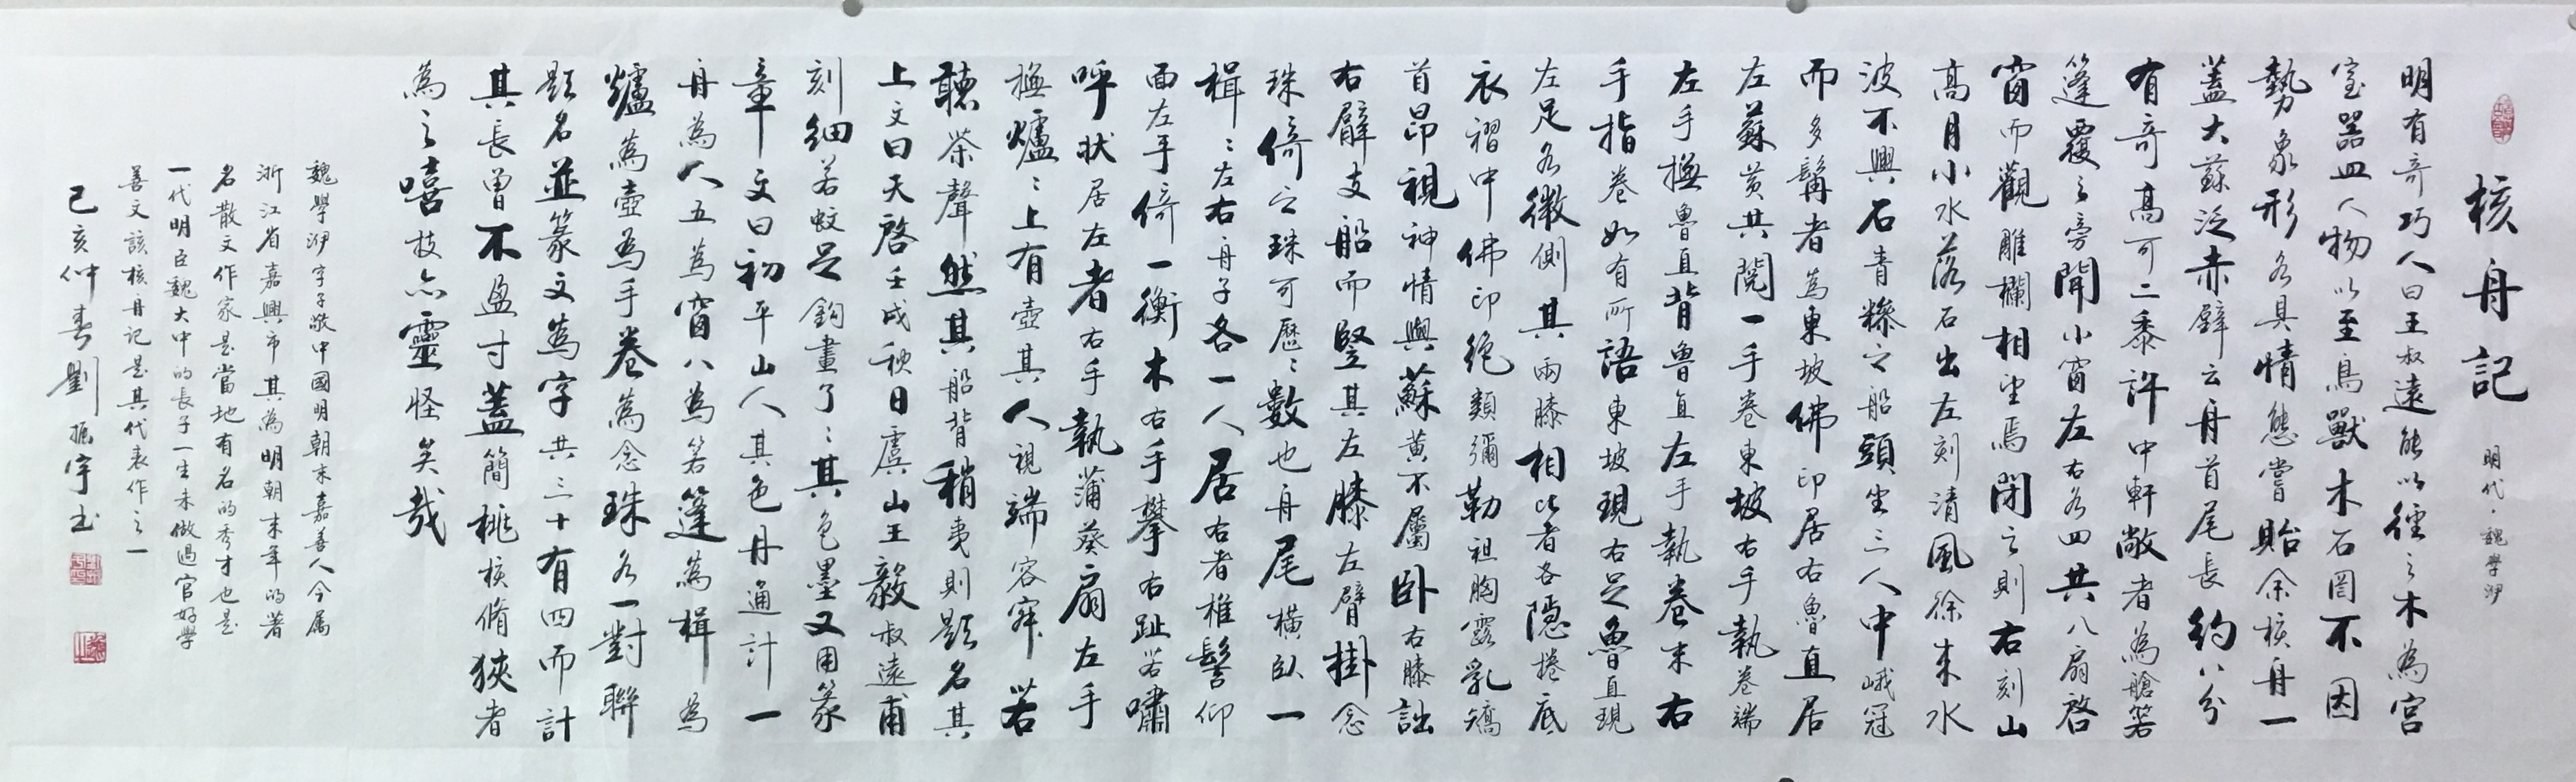 核舟記 明代·魏學洢
明有奇巧人曰王叔遠能以徑之木為宮
室器皿人物以至鳥獸木石罔不因
勢象形各具情態嘗貽余核舟一
蓋大蘇泛赤壁云舟首尾長約八分
有奇高可二黍許中軒敞者為艙箬
篷覆之旁開小窗左右各四共八扇啓
窗而觀雕欄相望焉閉之則右刻山
高月小水落石出左刻清風徐來水
波不興石青糝之船頭坐三人中峨冠
而多髯者為東坡佛印居右魯直居
左蘇黃共閱一手卷東坡右手執卷端
左手撫魯直背魯直左手執卷末右
手指卷如有所語東坡現右足魯直現
左足各微側其兩膝相比者各隱捲底
衣褶中佛印絕類彌勒袒胸露乳矯
首昂視神情與蘇黃不屬卧右膝詘
右臂支船而豎其左膝左臂掛念
珠倚之珠可歷〻數也舟尾橫臥一
楫〻左右舟子各一人居右者椎髻仰
面左手倚一衡木右手攀右趾若嘯
呼狀居左者右手執蒲葵扇左手
撫爐〻上有壺其人視端容寂若
聽茶聲然其船背稍夷則題名其
上文曰天啓壬戌秋日虞山王毅叔遠甫
刻細若蚊足鈎畫了〻其色墨又用篆
章文曰初平山人其色丹通計一
舟為人五為窗八為箬篷為楫為
爐為壺為手卷為念珠各一對聯
題名並篆文為字共三十有四而計
其長曾不盈寸蓋簡桃核脩狹者
為之嘻技亦靈怪矣哉
魏學洢字子敬中國明朝末嘉善人今屬
浙江省嘉興市其為明朝末年的著
名散文作家是當地有名的秀才也是
一代明臣魏大中的長子一生未做過官好學
善文該核舟記是其代表作之一
己亥仲春劉振宇书